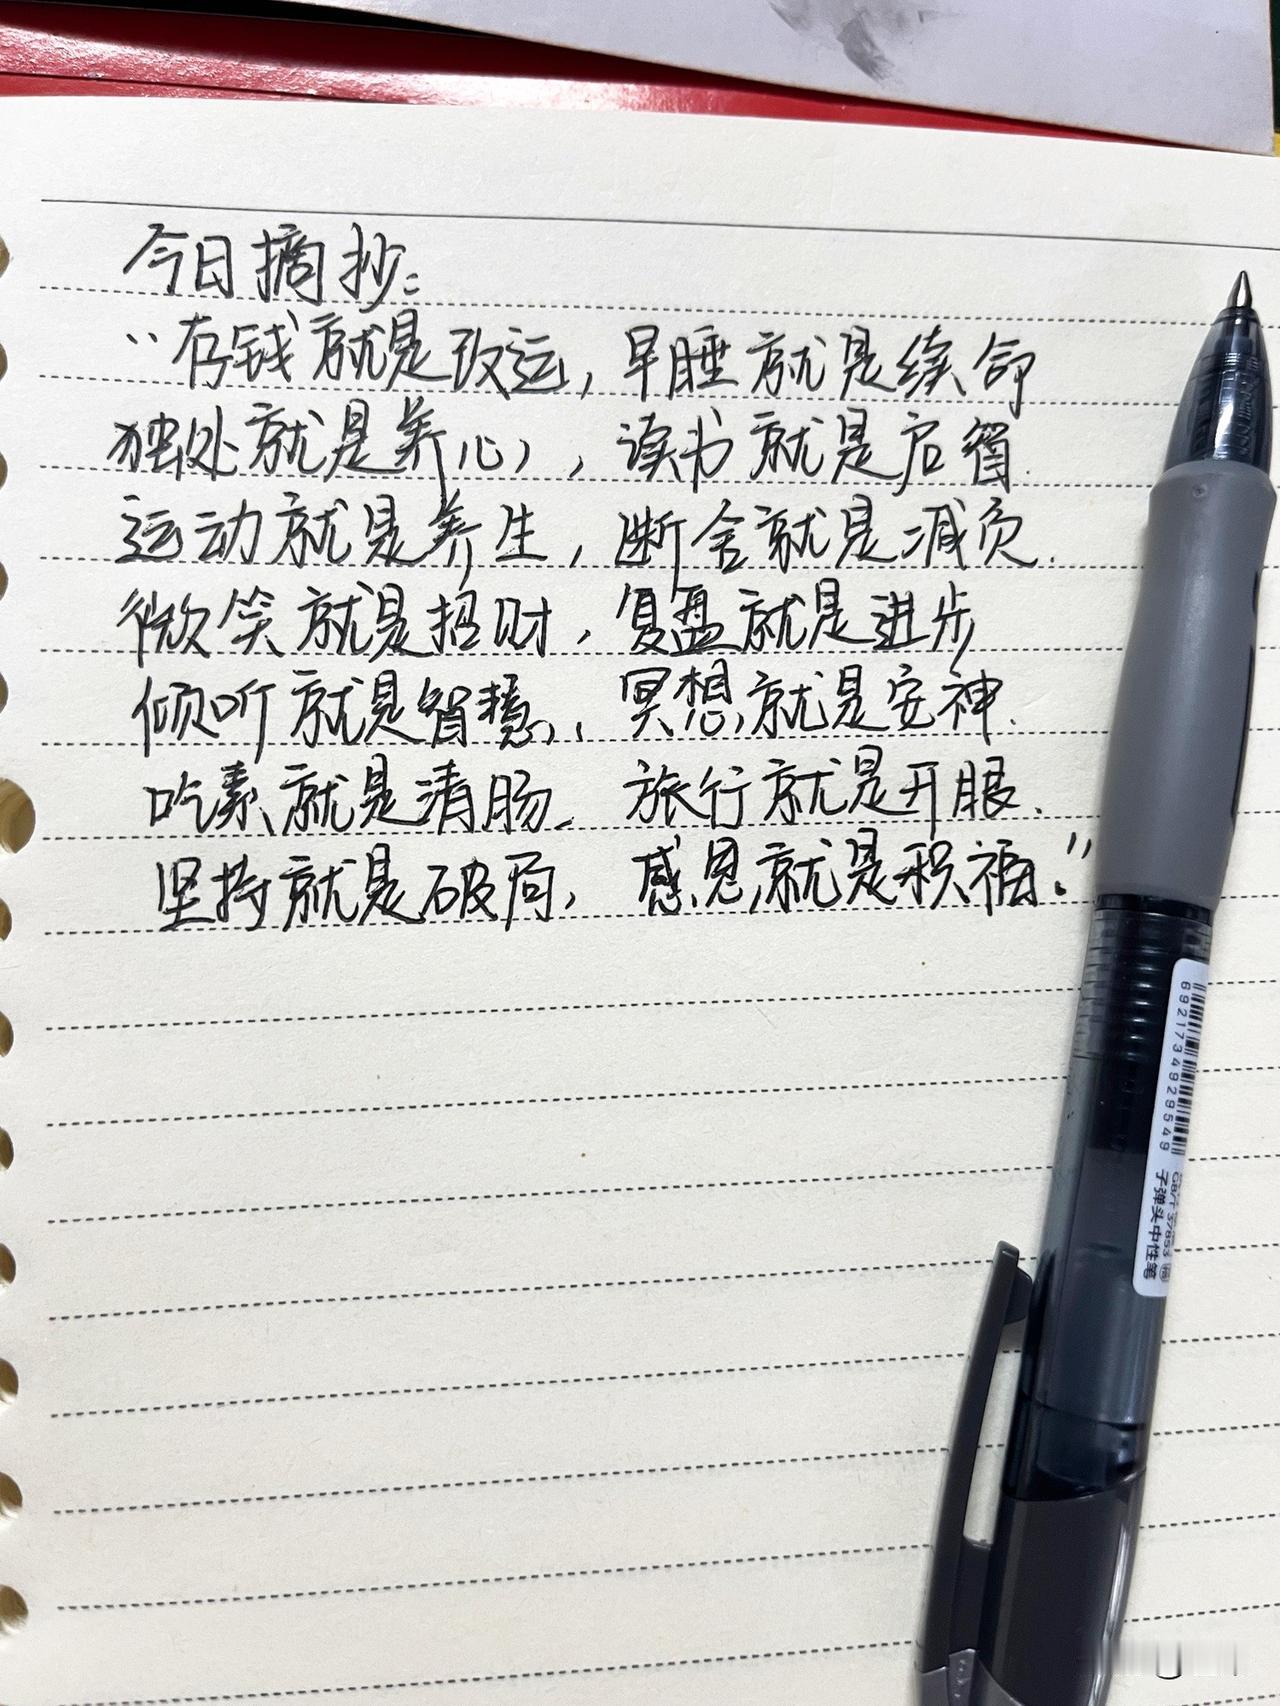 今日摘抄：
“存钱就是改运，早睡就是续命
独处就是养心，读书就是启智.
运动就是养生，断舍就是减负.
微笑就是招财，复盘就是进步
倾听就是智慧，冥想就是安神.
吃素就是清肠. 旅行就是开眼.
坚持就是破局，感恩就是积福.”
6921734929549
GB/T 37853
子弹头中性笔